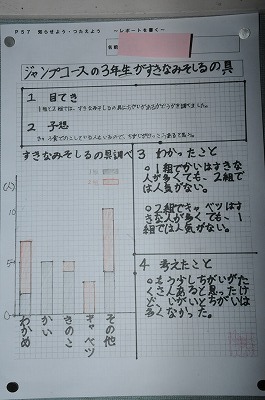 P57 知らせよう・つたえよう 〜レポートを書く〜
名前
ジャンプコースの3年生がすきなみそしるの具
1 目てき
1組と2組では、すきなみそしるの具にちがいがあるかどうか調べました。
2 予想
すきなみそしるの具調べ
(人)
10
5
0
わかめ
かい
きのこ
キャベツ
その他
1組
2組
3 わかったこと
○1組でかいはすきな
人が多くても、2組で
は人気がない。
○2組でキャベツはす
きな人が多くても、1
組では人気がない。
4 考えたこと
○もう少しちがいがた
くさんあると思ったけ
どいがいとちがいは
多くなかった。